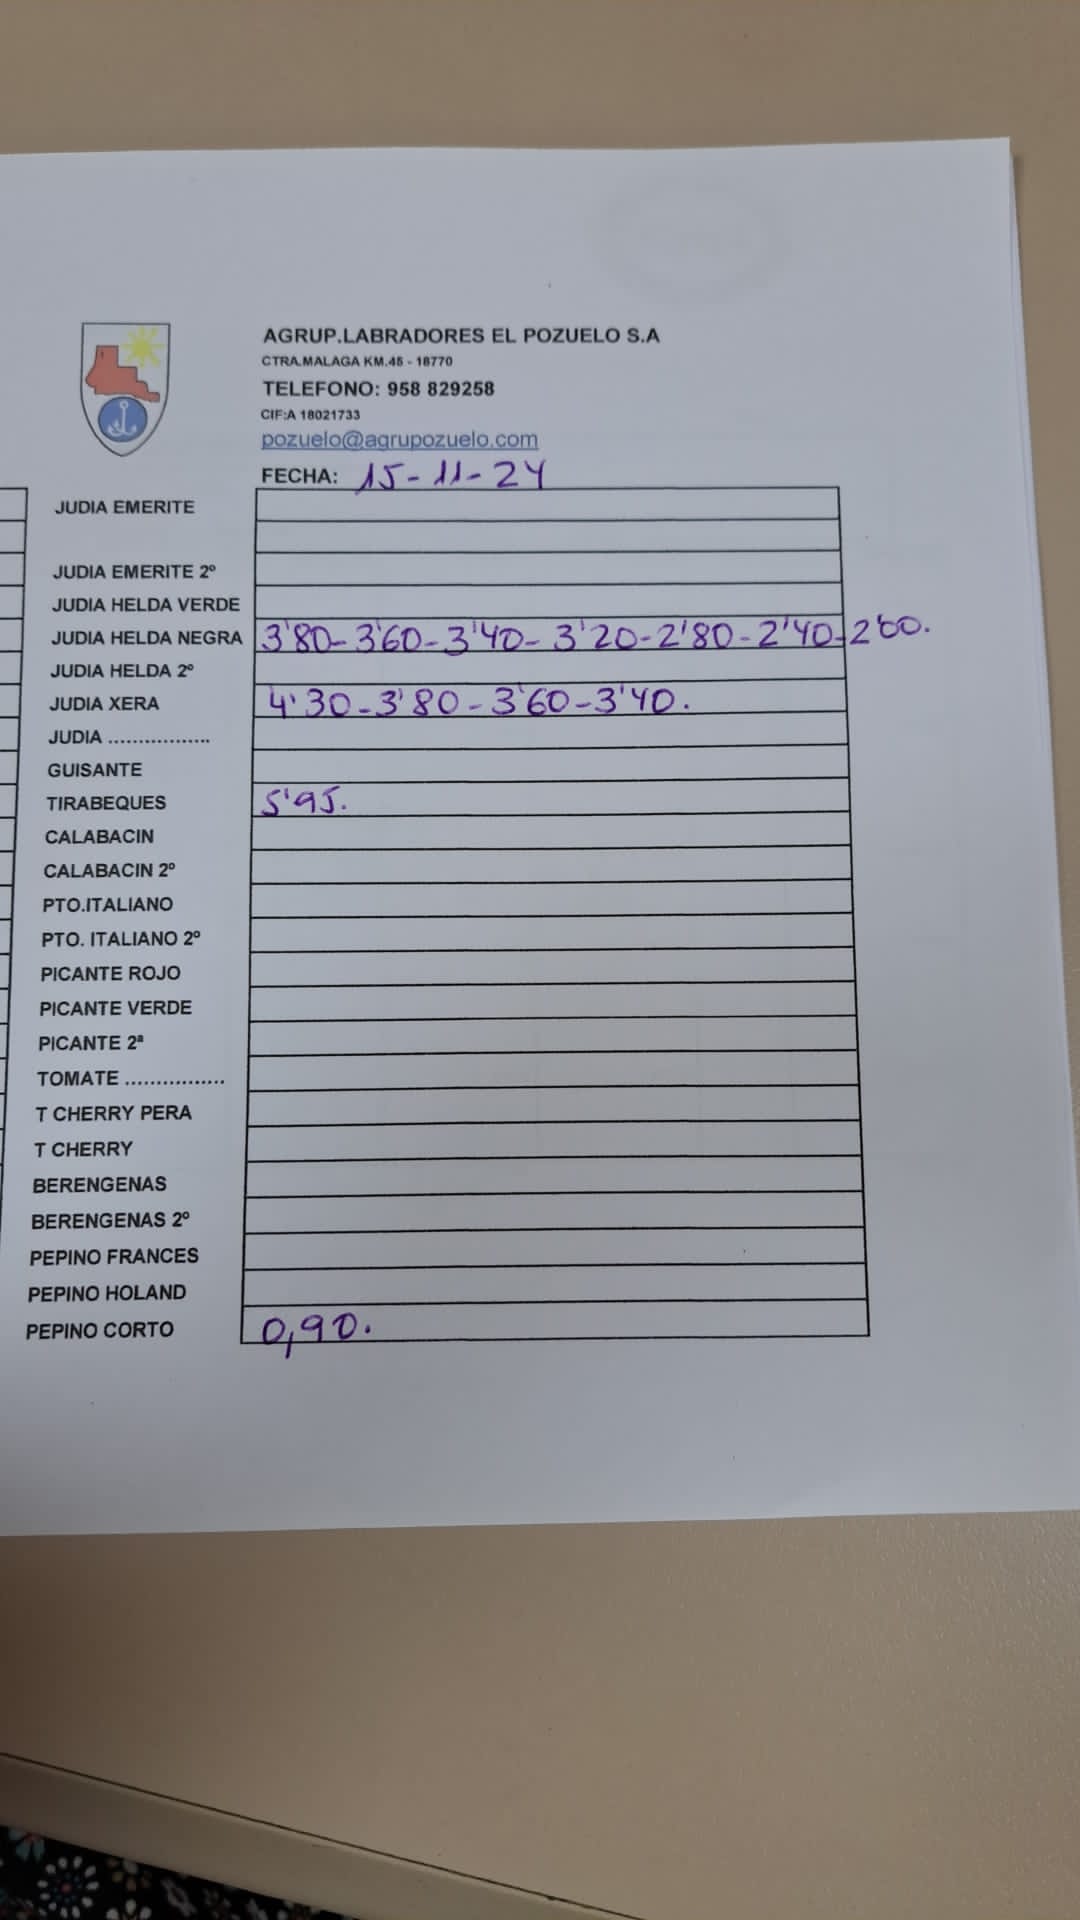 AGRUP.LABRADORES EL POZUELO S.A
CTRA.MALAGA KM.45 - 18770
TELEFONO: 958 829258
CIF:A 18021733
pozuelo@agrupozuelo.com
FECHA: 15-11-24
JUDIA EMERITE
JUDIA EMERITE 2º
JUDIA HELDA VERDE
JUDIA HELDA NEGRA 3'80-3'60-3'40-3'20-2'80-2'40-2'00.
JUDIA HELDA 2º
JUDIA XERA 4'30-3'80-3'60-3'40.
JUDIA .................
GUISANTE
TIRABEQUES 5'95.
CALABACIN
CALABACIN 2º
PTO.ITALIANO
PTO. ITALIANO 2º
PICANTE ROJO
PICANTE VERDE
PICANTE 2ª
TOMATE ................
T CHERRY PERA
T CHERRY
BERENGENAS
BERENGENAS 2º
PEPINO FRANCES
PEPINO HOLAND
PEPINO CORTO 0,90.